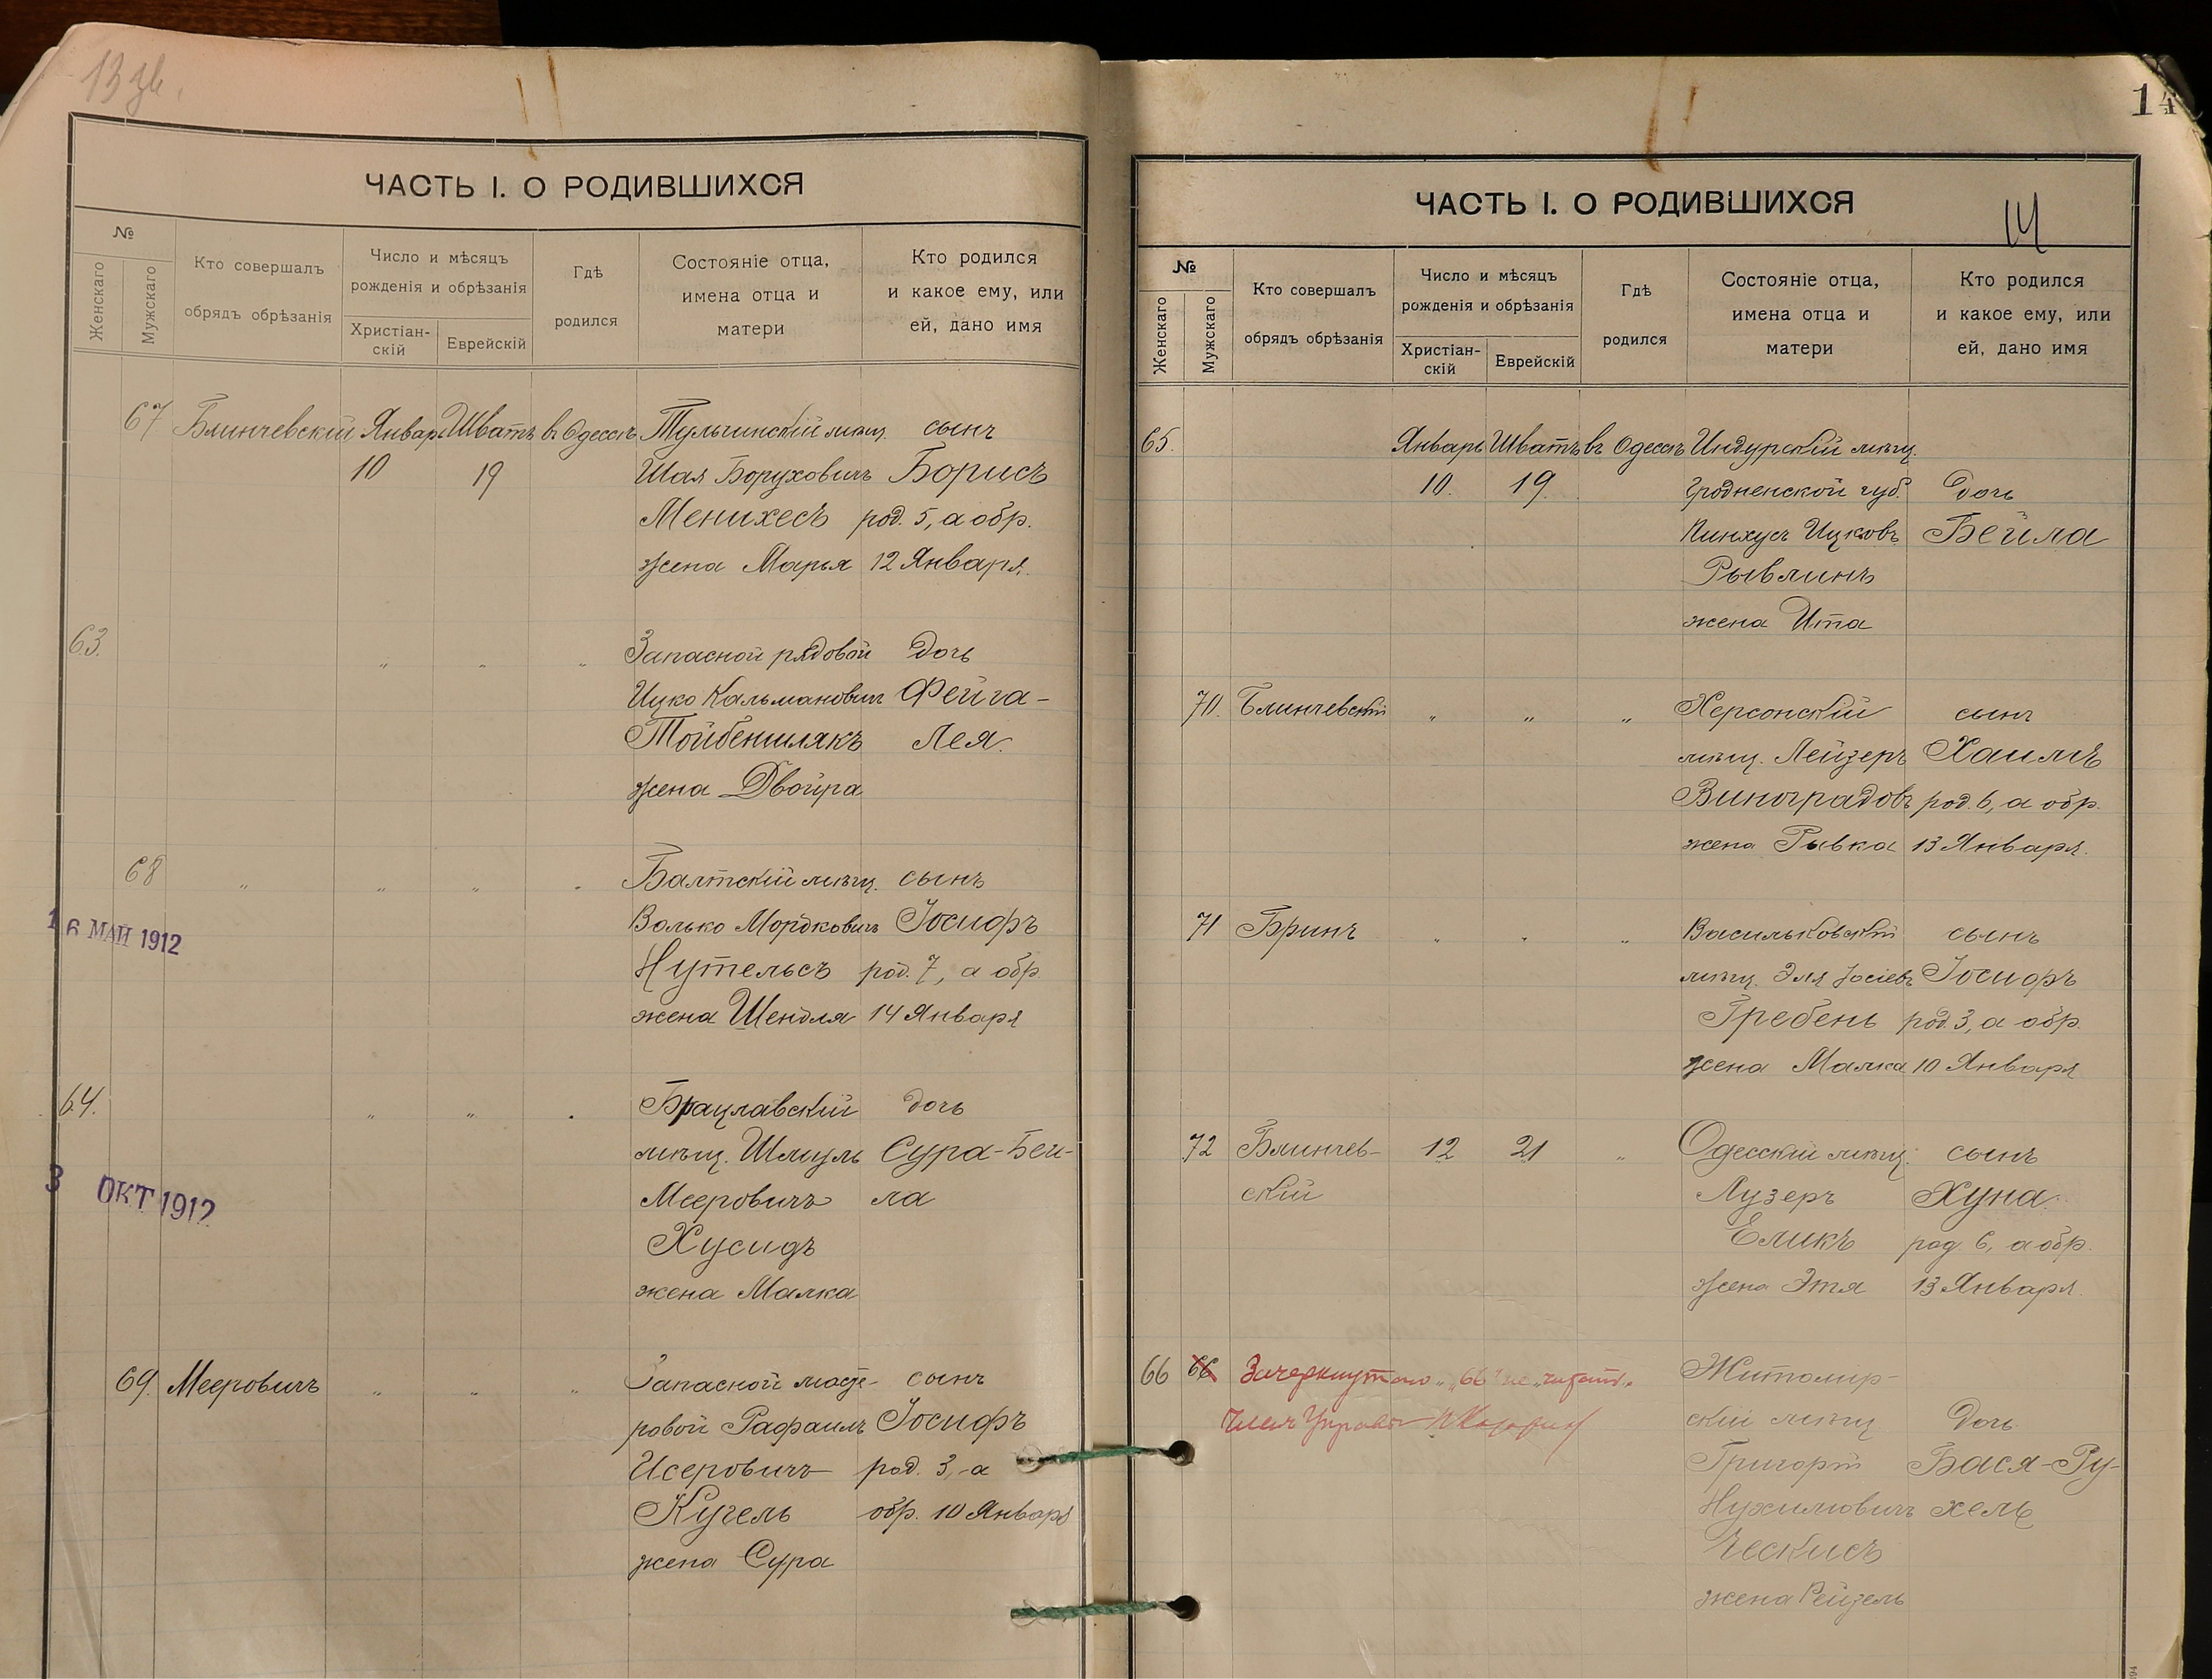 13 зв.
ЧАСТЬ I. О РОДИВШИХСЯ
№
Женскаго
Мужскаго
Кто совершалъ
обрядъ обрѣзанія
Число и мѣсяцъ
рожденія и обрѣзанія
Христіан-
скій
Еврейскій
Гдѣ
родился
Состояніе отца,
имена отца и
матери
Кто родился
и какое ему, или
ей, дано имя
67 Блинчевскій Январь Шватъ въ Одессѣ Тульчинскій мѣщ. сынъ
10 19 Шая Боруховичъ Борисъ
Менихесъ род. 5, а обр.
жена Марья 12 Января.
63. " " " Запасной рядовой дочь
Ицко Кальмановичъ Фейга-
Тойбеншлякъ Лея.
жена Двойра
68 " " " " Балтскій мѣщ. сынъ
Волько Мордковичъ Іосифъ
16 МАЙ 1912
Нутельсъ род. 7, а обр.
жена Шендля 14 Января
64. " " " Брацлавскій дочь
мѣщ. Шмуль Сура-Бей-
3 ОКТ 1912
Мееровичъ ла
Хусидъ
жена Малка
69. Мееровичъ " " " Запасной масте- сынъ
ровой Рафаилъ Іосифъ
Исеровичъ род. 3, а
Кугель обр. 10 Января
жена Сура
14
ЧАСТЬ I. О РОДИВШИХСЯ
14
№
Женскаго
Мужскаго
Кто совершалъ
обрядъ обрѣзанія
Число и мѣсяцъ
рожденія и обрѣзанія
Христіан-
скій
Еврейскій
Гдѣ
родился
Состояніе отца,
имена отца и
матери
Кто родился
и какое ему, или
ей, дано имя
65. Январь Шватъ въ Одессѣ Индурскій мѣщ.
10. 19. Гродненской губ. дочь
Пинхусъ Ицковъ Бейла
Рывлинъ
жена Ита
70. Блинчевскій " " " Херсонскій сынъ
мѣщ. Лейзеръ Хаимъ
Виноградовъ род. 6, а обр.
жена Рывка 13 Января.
71 Бринъ " " " Васильковскій сынъ
мѣщ. Эля Іосіевъ Іосифъ
Гребень род. 3, а обр.
жена Малка 10 Января
72 Блинчев- 12 21 " Одесскій мѣщ. сынъ
скій Лузеръ Хуна.
Еликъ род. 6, а обр.
жена Этя 13 Января.
66 66 Зачеркнутаго "66" не читать. Житомир-
Членъ Управы скій мѣщ дочь
Григорій Бася-Ру-
Нухимовичъ хель
Ческисъ
жена Рейзель